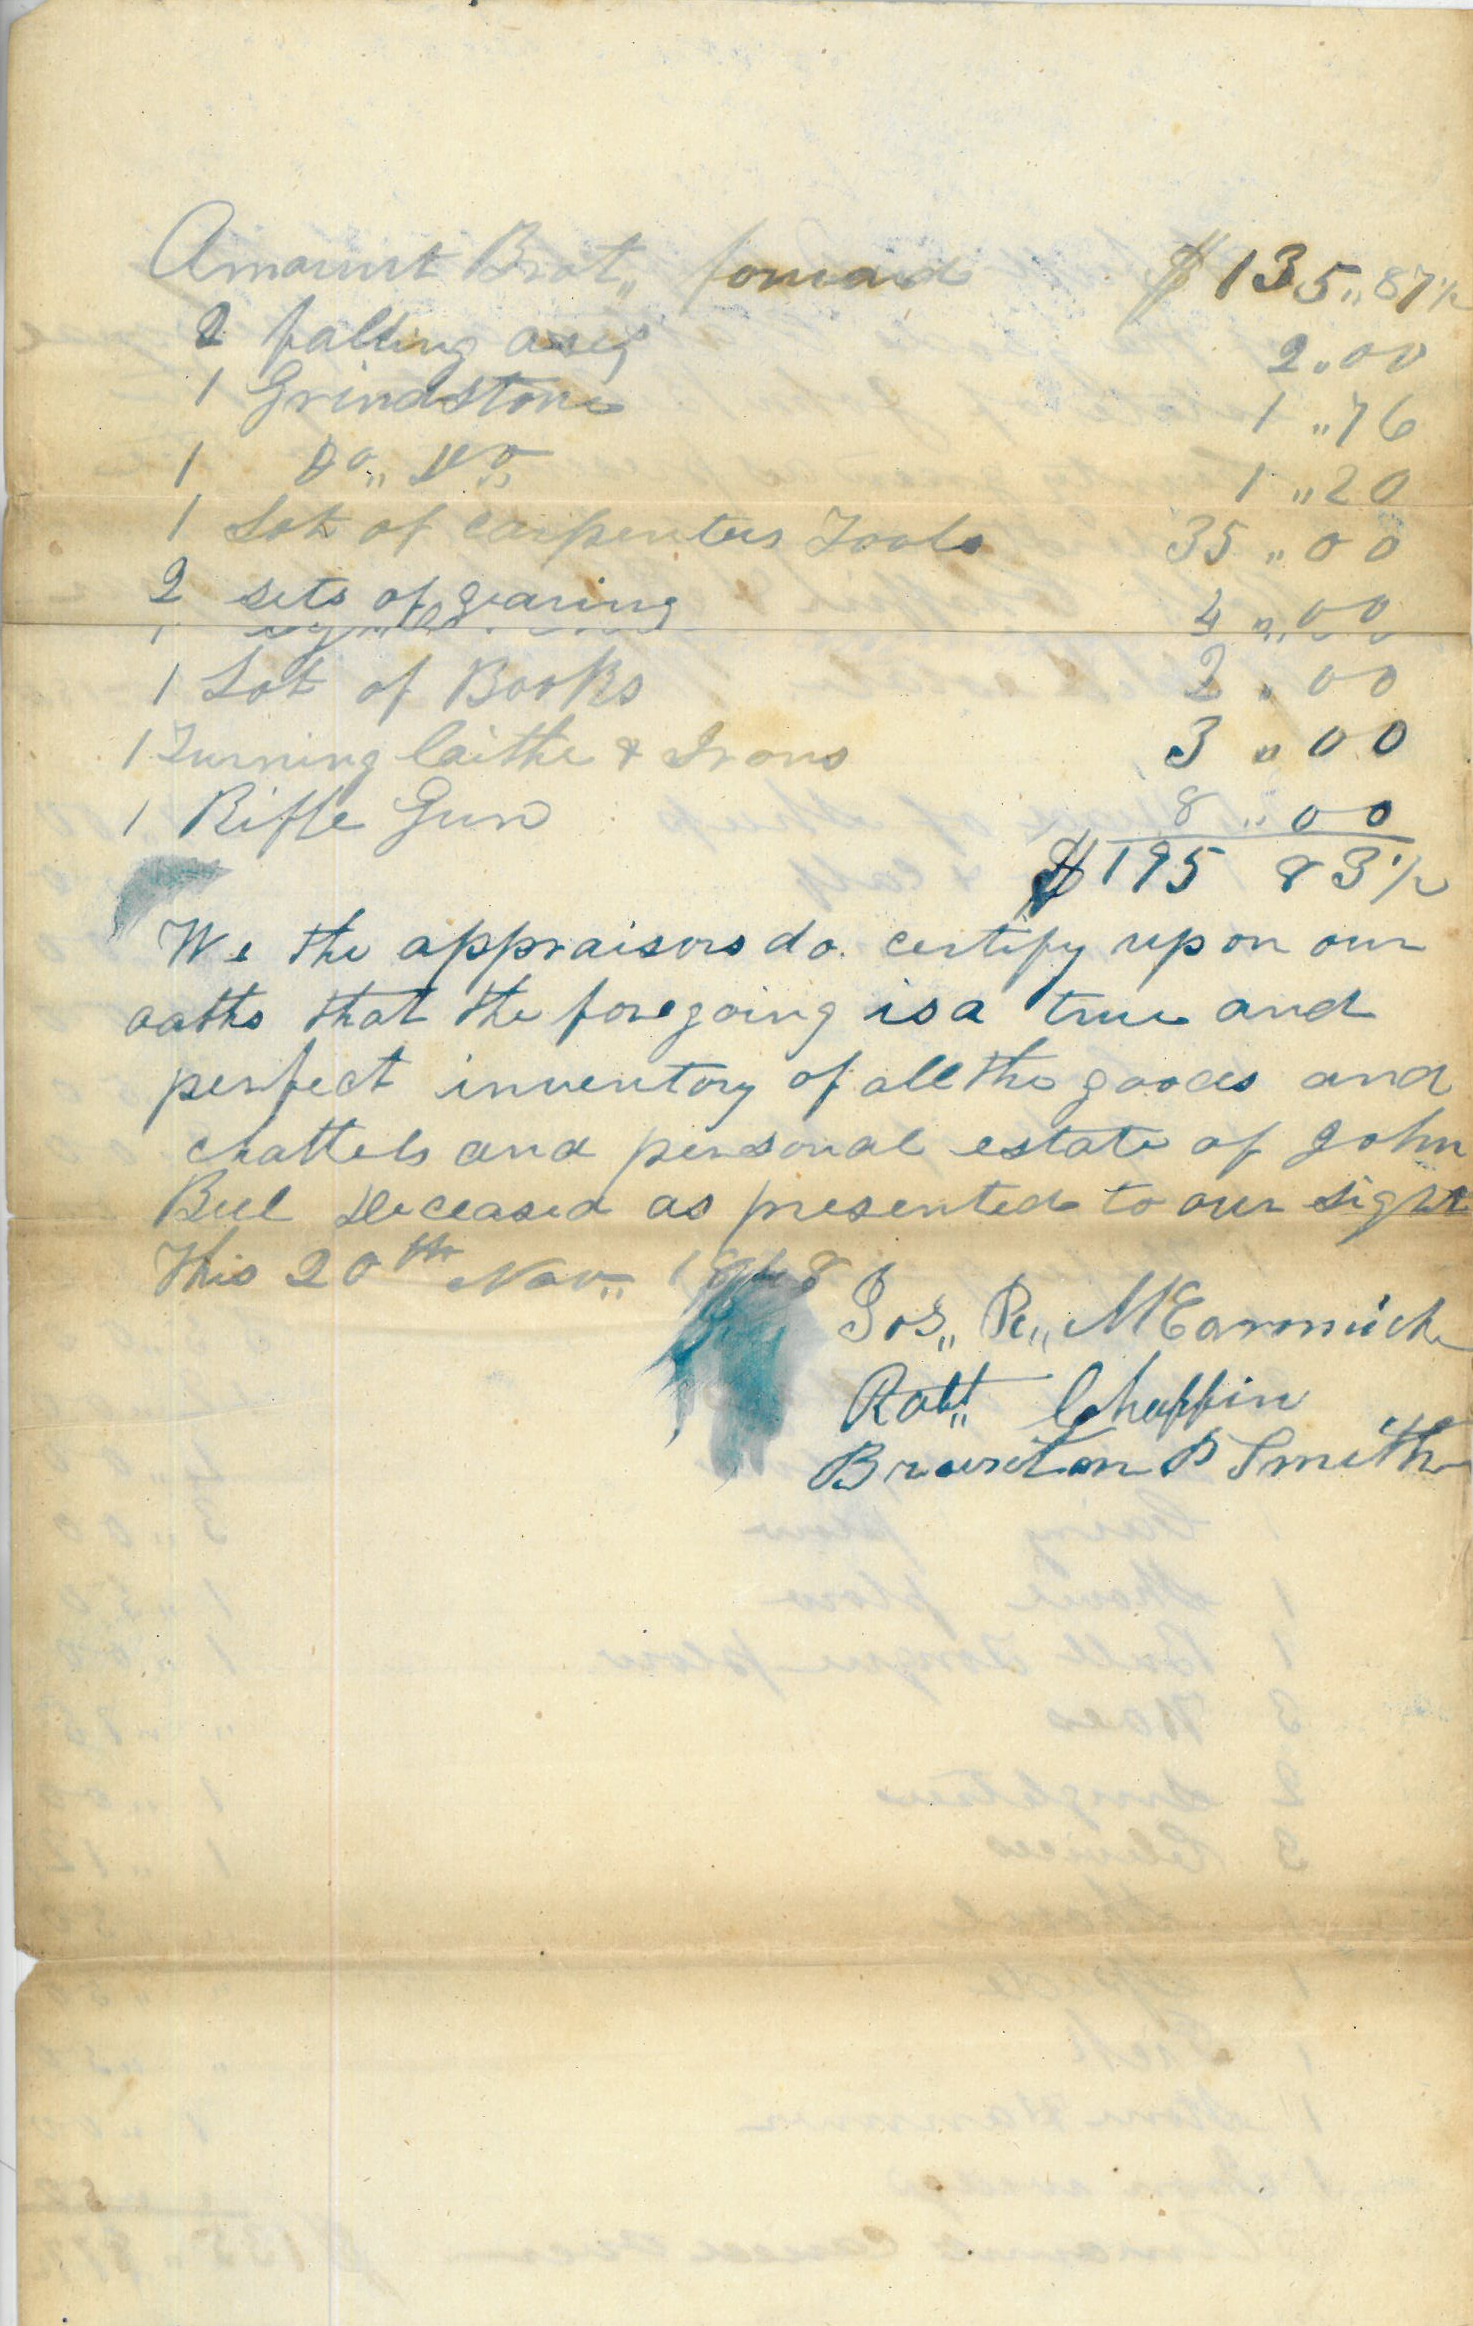 Amount Brot,, forward $135,,87½
2 falling axes 2,00
1 Grindstone 1,,76
1 Do,, Do,, 1,,20
1 Lot of carpenters Tools 35,,00
2 sets of gearing 4,,00
1 Lot of Books 2,,00
1 Turning laithe & Irons 3,,00
1 Rifle Gun 8,,00
$195 83½
We the appraisors do certify upon our
oaths that the foregoing is a true and
perfect inventory of all the goods and
chattels and personal estate of John
Deceased as presented to our sight
This 20th Nov,,
Jos,, R,, McCormick
Robt,, Chaffin
Smith